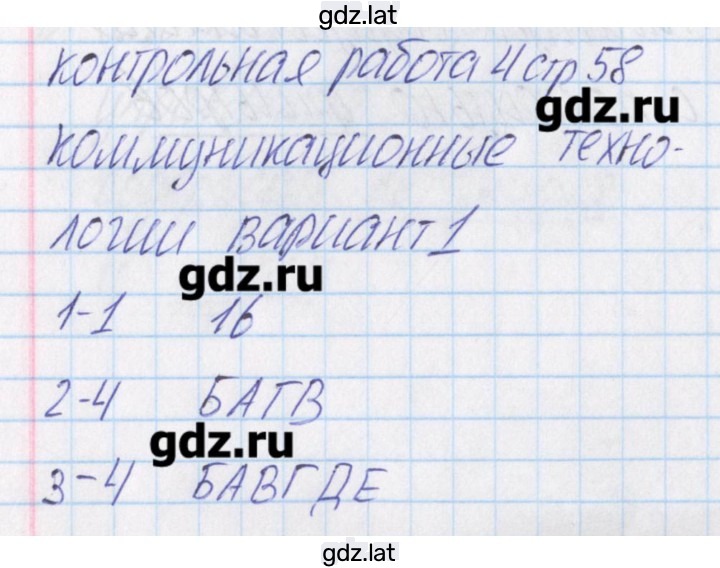 gdz.lat
контрольная работа 4 стр 58
gdz.ru
коммуникационные техно-
логии вариант 1
gdz.ru
1-1 16
2-4 БАГВ
gdz.ru
3-4 БАВГДЕ
gdz.lat